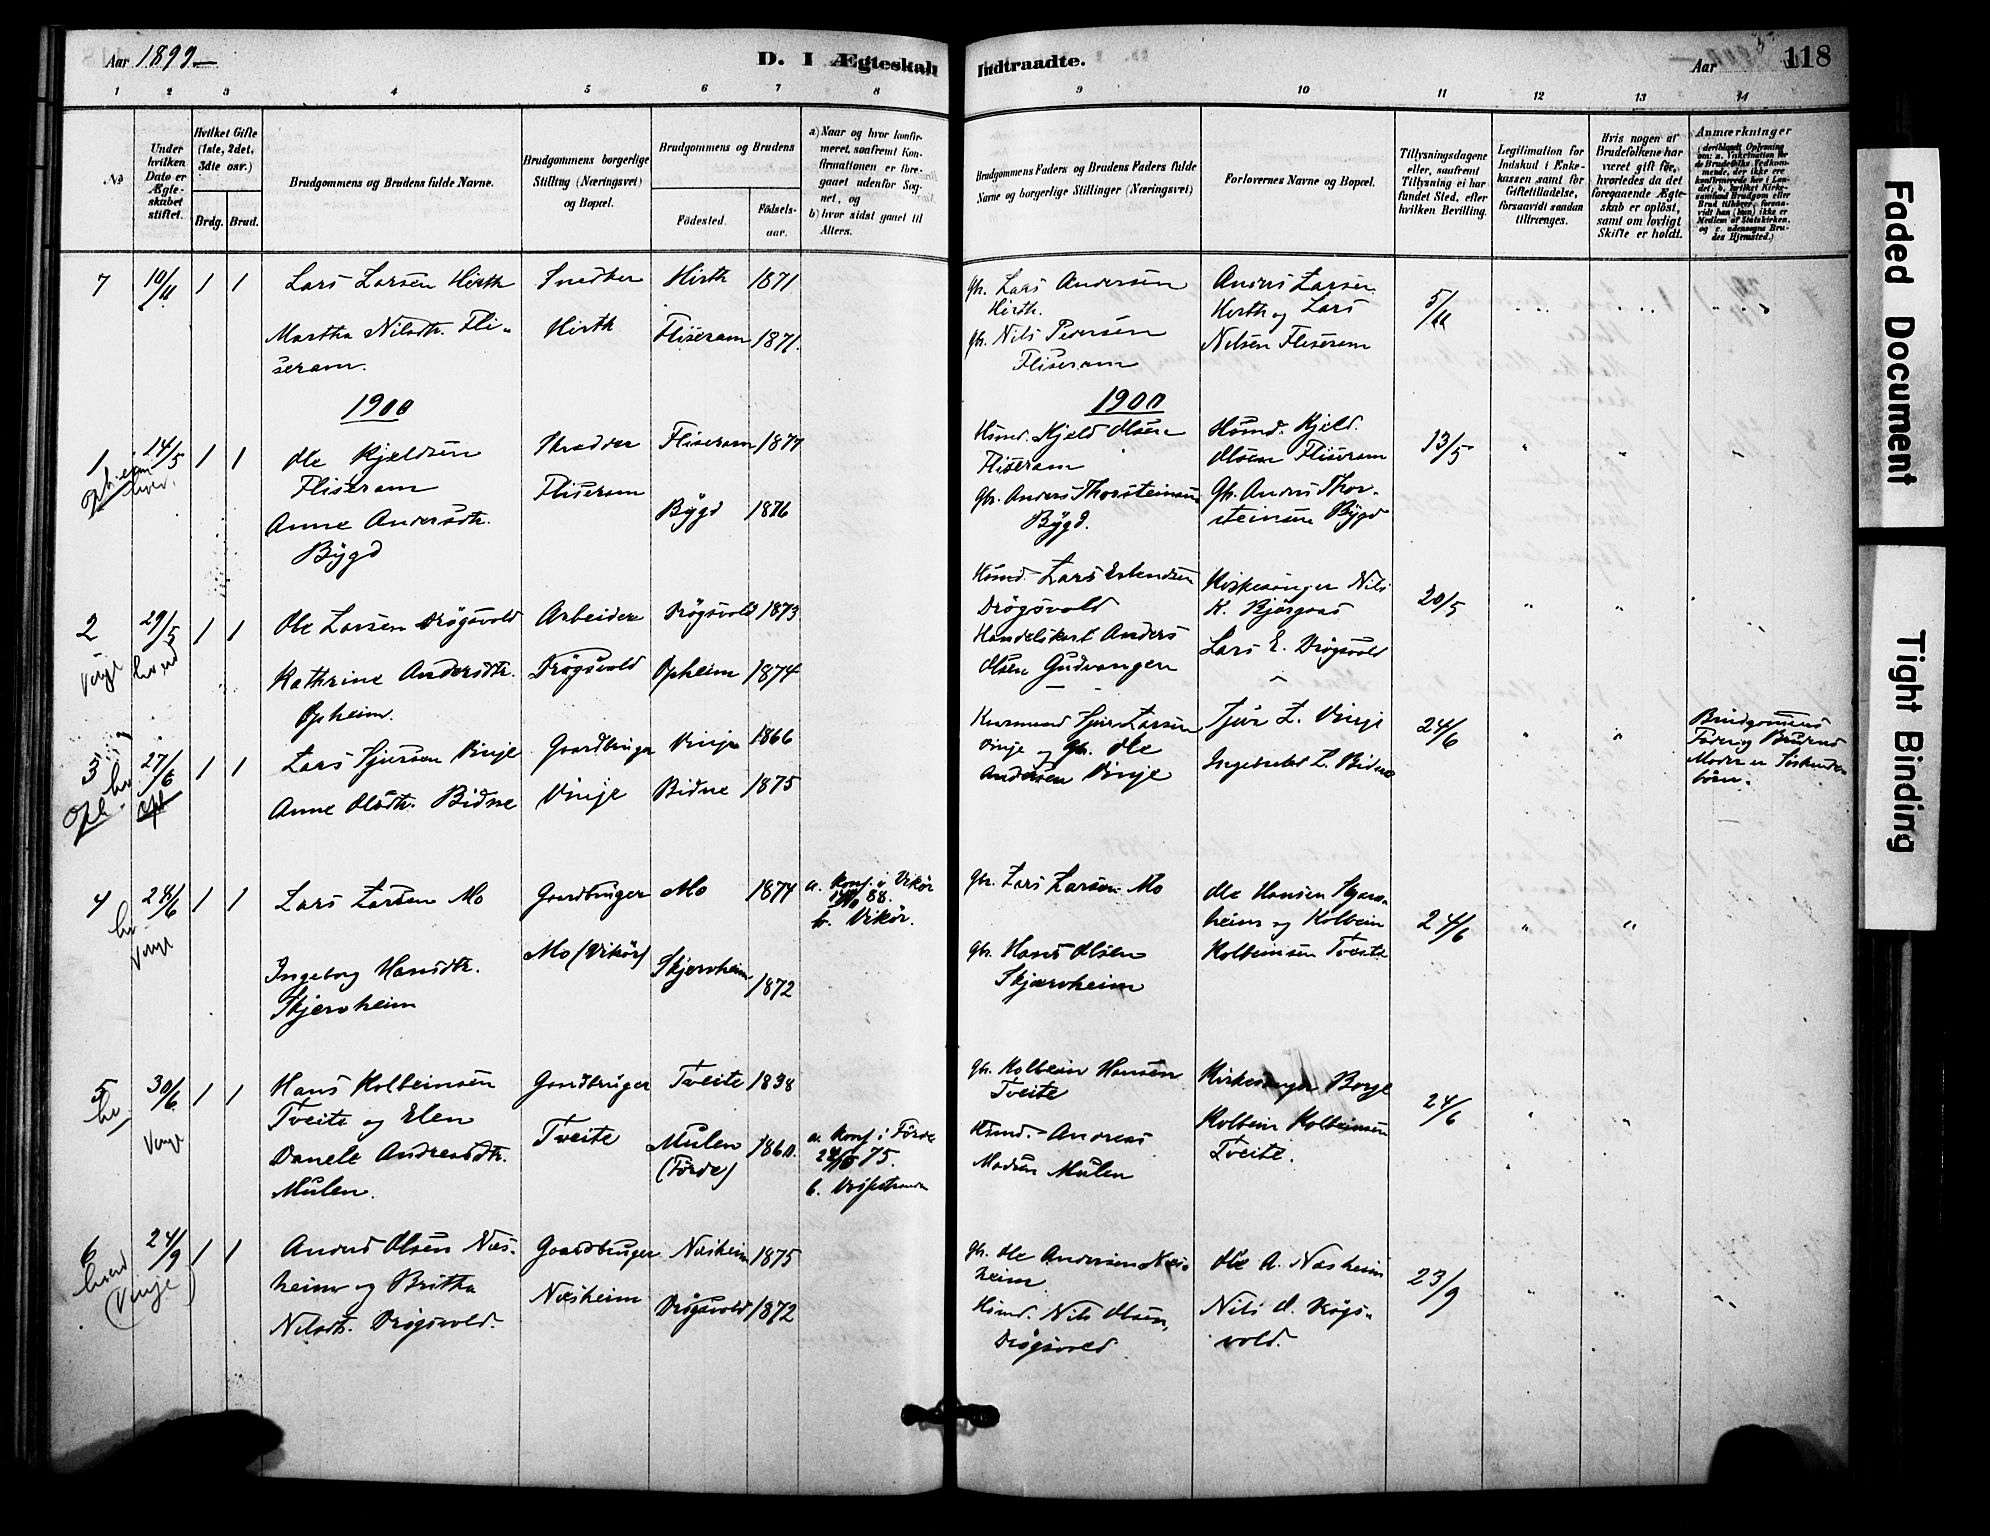 Aar 1899
D. I Ægteskab
Indtraadte.
Aar
118
1 2 3 4 5 6 7 8
9 10 11 12 13 14
No
Under hvilken Dato er Ægteskabet stiftet.
Hvilket Gifte (1ste, 2det, 3die osv.)
Brdg. Brud.
Brudgommens og Brudens fulde Navne.
Brudgommens borgerlige Stilling (Næringsvei) og Bopæl.
Brudgommens og Brudens
Födested.
Födselsaar.
a) Naar og hvor konfirmeret, saafremt Konfirmationen er foregaaet udenfor Sognet, og
b) hvor sidst gaaet til Alters.
Brudgommens Faders og Brudens Faders fulde Navne og borgerlige Stillinger (Næringsvei)
Forlovernes Navne og Bopæl.
Tillysningsdagene eller, saafremt Tillysning ei har fundet Sted, efter hvilken Bevilling.
Legitimation for Indskud i Enkekassen samt for Giftetilladelse, forsaavidt saadan tiltrænges.
Hvis nogen af Brudefolkene har været gift för, hvorledes da det foregaaende Ægteskab er oplöst, samt om lovligt Skifte er holdt.
Anmærkninger
7 10/11 1 1 Lars Larsen Hirth Snedker Hirth 1871
Martha Nilsdtr. Fli-
seram.
Hirth Fliseram 1871.
Gbr. Lars Andersen
Hirth.
Gbr. Nils Pedersen
Fliseram
Anders Larsen
Hirth og Lars
Nilsen Fliseram
5/11
1900
1900
1 14/5 1 1 Ole Kjeldsen
Fliseram
Anne Andersdtr.
Bÿgd
Skrædder Fliseram 1877
Fliseram Bÿgd 1876
Husmd. Kjeld Olsen
Fliseram
Gbr. Anders Thorsteinsen
Bÿgd.
Husmd. Kjeld
Olsen Fliseram
Gbr. Anders Thor-
steinsen Bÿgd
13/5
2 29/5 1 1 Ole Larsen Drøgsvold Arbeider Drøgsvold 1873
Vinje
Kathrine Andersdtr. Drøgsvold Opheim 1874
Opheim.
Husmd. Lars Erlendsen
Drøgsvold
Handelskarl Anders
Olsen Gudvangen
Kirkesanger Nils
K. Bjørgaas
Lars E. Drøgsvold
20/5
3 27/6 1 1 Lars Sjursen Vinje Gaardbruger Vinje 1866
Oph. Anne Olsdtr. Bidne Vinje Bidne 1875
Kaarmand Sjur Larsen
Vinje og Gbr. Ole
Andersen Vinje
Sjur L. Vinje
Ingebrekt L. Bidne
24/6
Brudgommens
Fader og Brudens
Moder er Søskende-
børn.
4 24/6 1 1 Lars Larsen Mo Gaardbruger Mo 1874
Vinje
a. Konf. i Vikør
88.
b. Vikør.
Ingeborg Hansdtr.
Skjervheim
Mo (Vikør) Skjervheim 1872
Gbr. Lars Larsen Mo
Gbr. Hans Olsen
Skjærvheim
Ole Hansen Skjærv-
heim og Kolbein
Kolbeinsen Tveite
24/6
5 30/6 1 1 Hans Kolbeinsen
Tveite og Elen
Danele Andreasdtr.
Mulen.
Vinje
Gaardbruger Tveite 1838
Tveite Mulen 1860.
(Førde)
a. Konf. i Førde
75.
b. Vossestranden
Gbr. Kolbein Hansen
Tveite
Husmd. Andreas
Madsen Mulen
Kirkesanger Borge
Kolbein Kolbeinsen
Tveite.
24/6
6 24/9 1 1 Anders Olsen Næs-
heim og Britha
Nilsdtr. Drøgsvold.
(Vinje)
Gaardbruger Næsheim 1875
Næsheim Drøgsvold 1872
Gbr. Ole Andersen Næs-
heim
Husmd. Nils Olsen
Drøgsvold
Ole A. Næsheim
Nils O. Drøgs-
vold.
23/9
Faded Document
Tight Binding